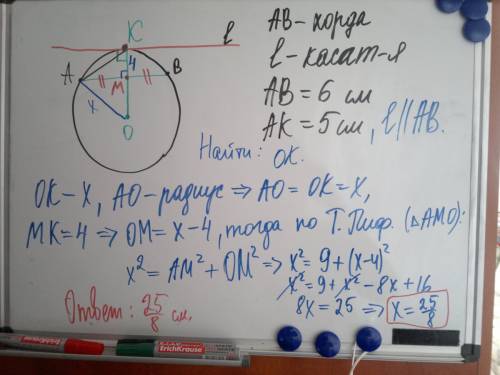 K
l
4
A
B
M
x
O
AB – хорда
l – касат-я
AB = 6 см
AK = 5 см, l || AB.
Найти: OK.
OK – x, AO – радиус ⇒ AO = OK = x,
MK = 4 ⇒ OM = x – 4, тогда по Т. Пиф. (△AMO):
x² = AM² + OM² ⇒ x² = 9 + (x–4)²
x² = 9 + x² – 8x + 16
8x = 25 ⇒ x = 25/8
Ответ: 25/8 см.
ErichKrause